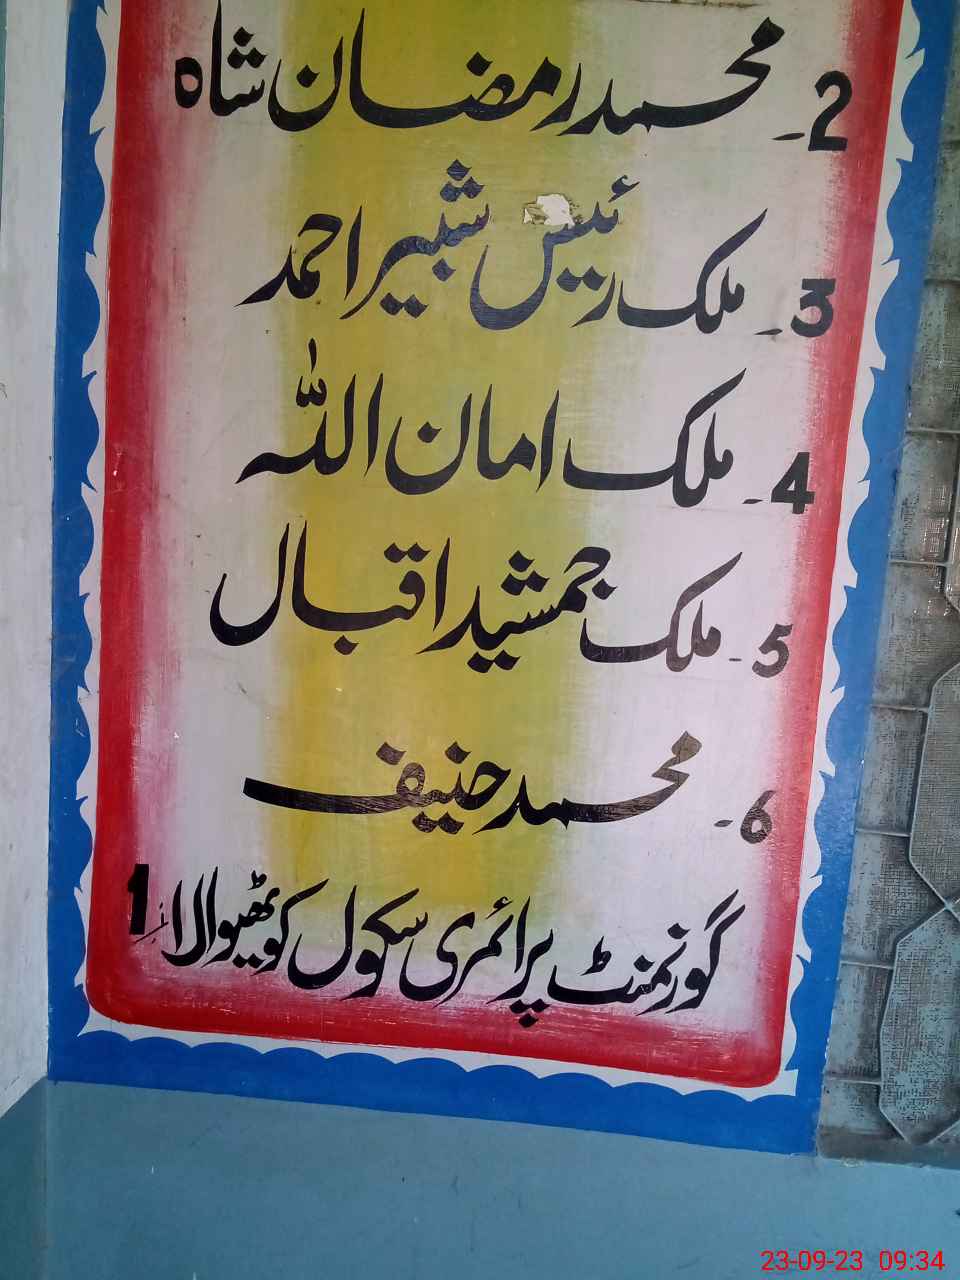 2۔ محمد رمضان شاہ
3۔ ملک رئیس شبیر احمد
4۔ ملک امان اللہ
5۔ ملک جمشید اقبال
6۔ محمد حنیف
گورنمنٹ پرائمری سکول کوٹھیوالا 1
23-09-23 09:34